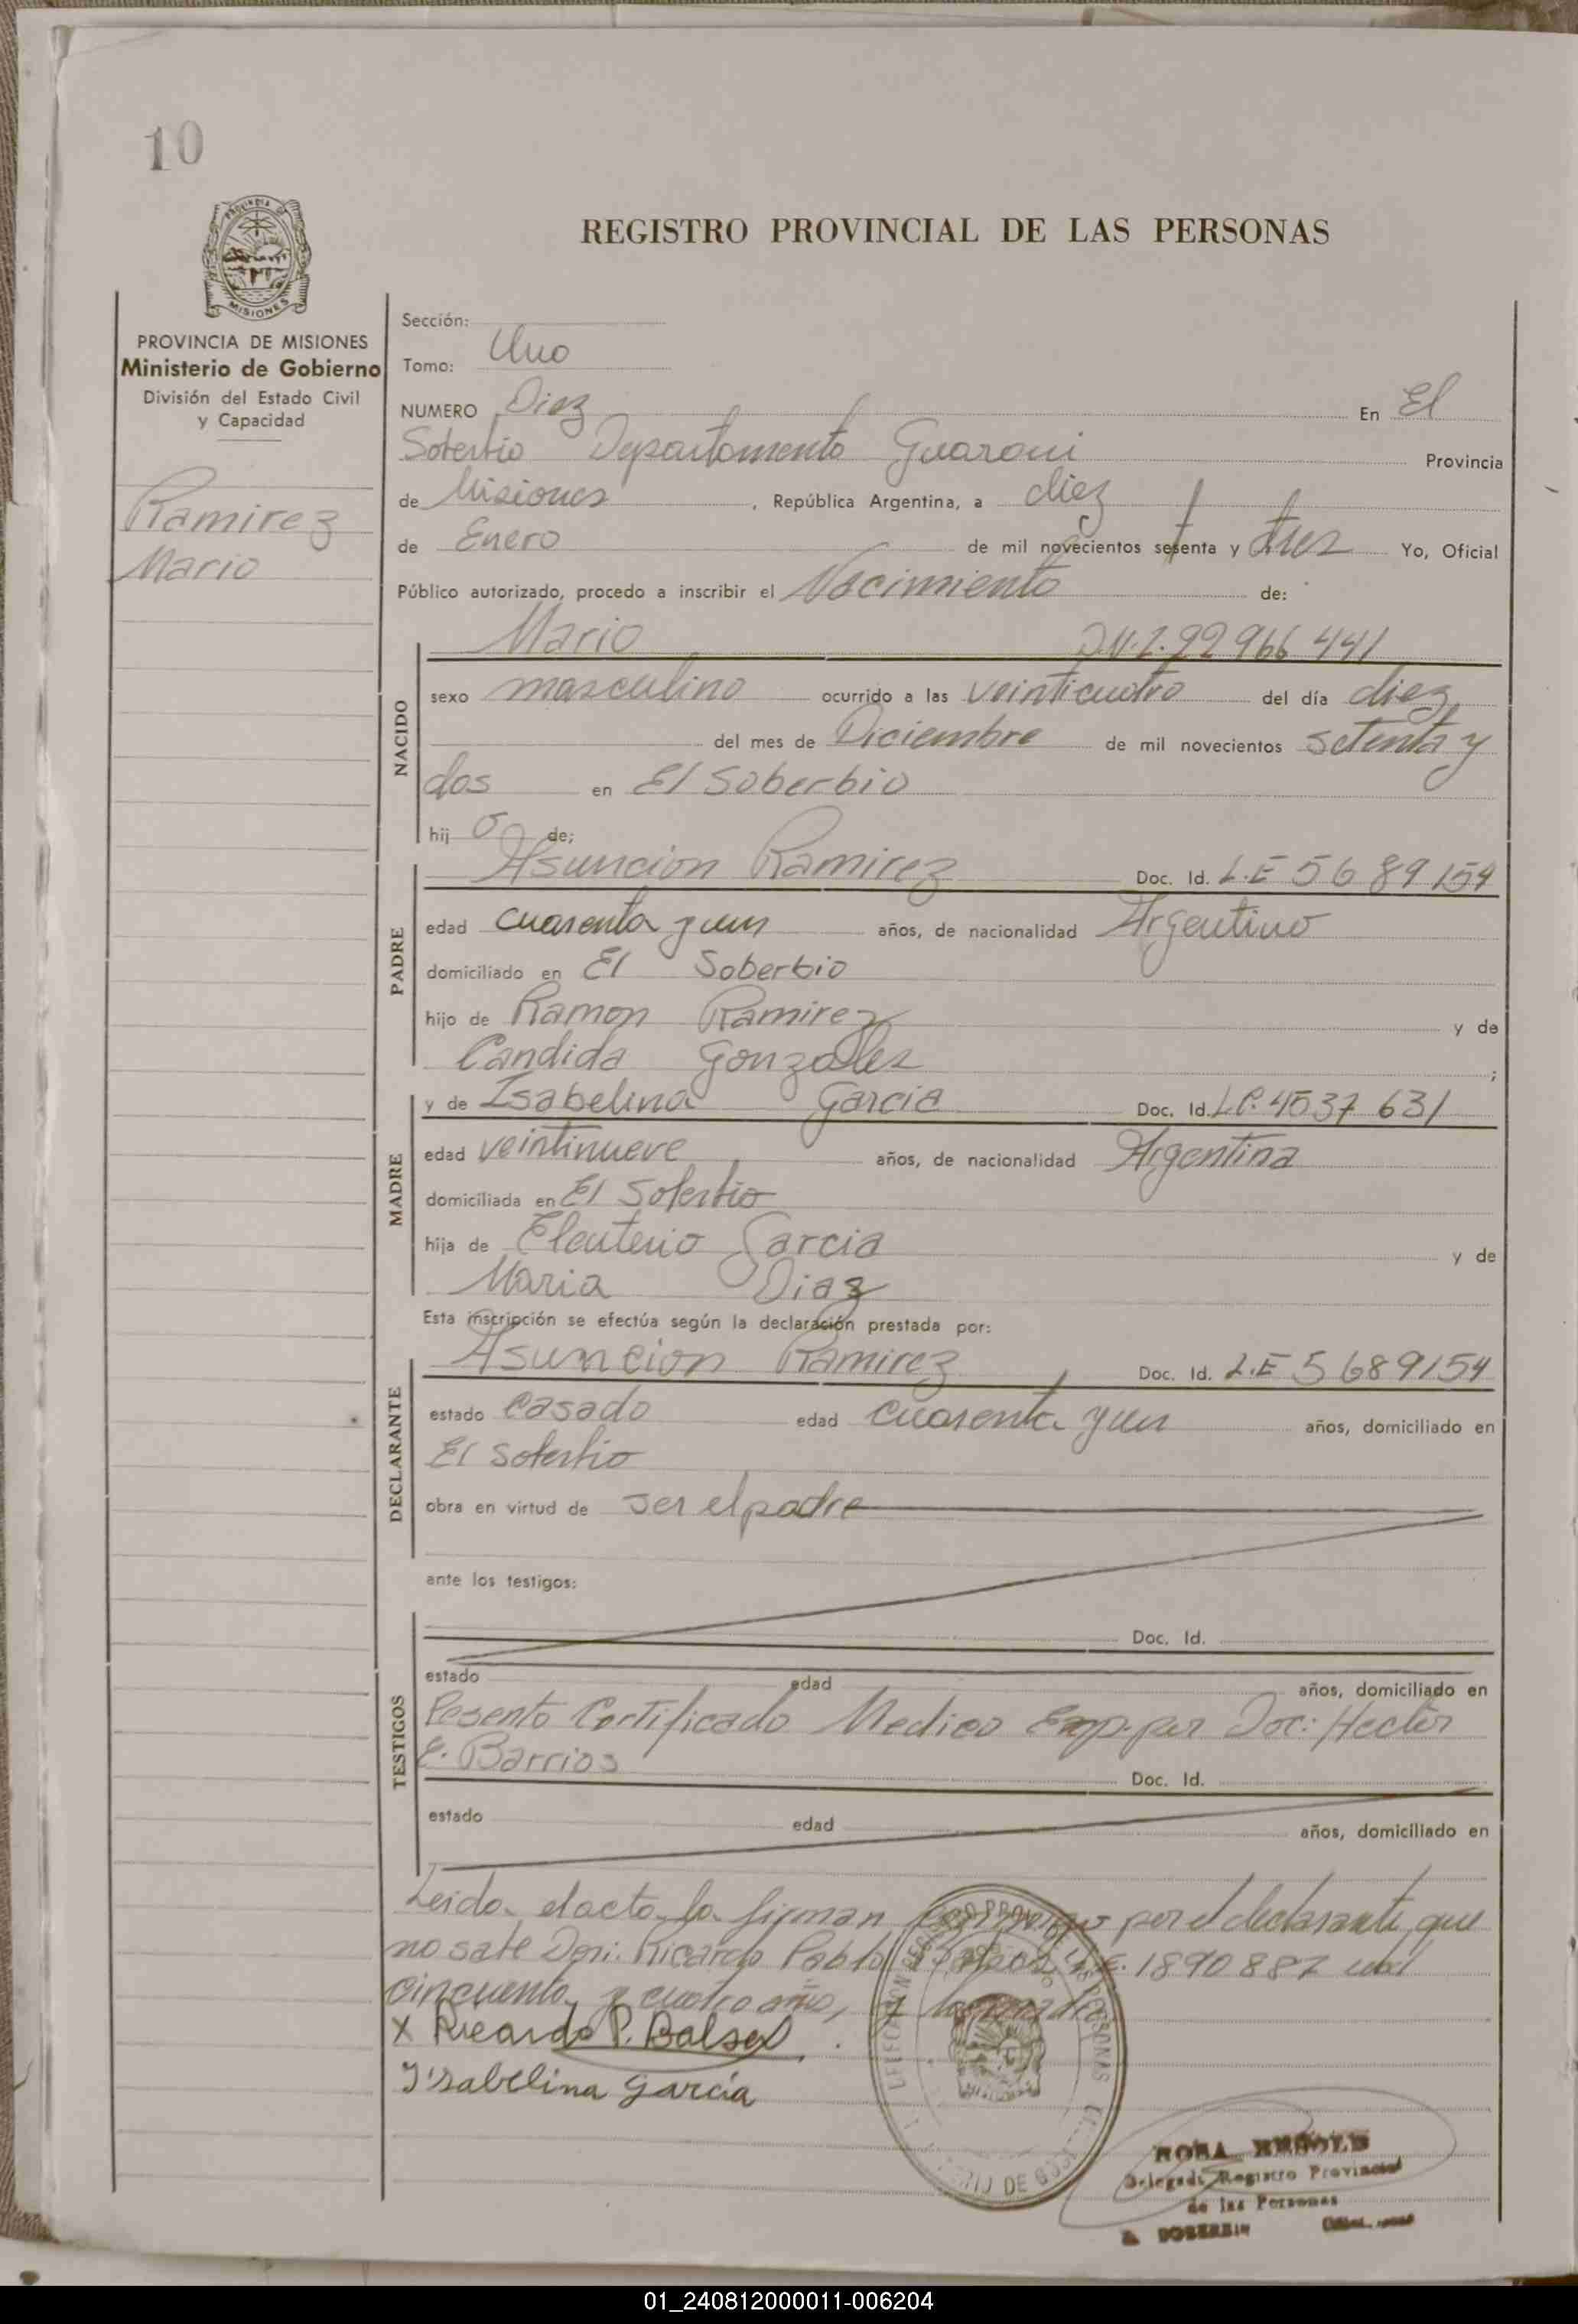 10
PROVINCIA DE
MISIONES
REGISTRO PROVINCIAL DE LAS PERSONAS
PROVINCIA DE MISIONES
Ministerio de Gobierno
División del Estado Civil
y Capacidad
Ramirez
Mario
Sección:
Tomo: Uno
NUMERO Diez En El
Soberbio Departamento Guarani Provincia
de Misiones, República Argentina, a diez
de Enero de mil novecientos setenta y tres Yo, Oficial
Público autorizado, procedo a inscribir el Nacimiento de:
Mario D.N.I. 22 966 441
NACIDO
sexo masculino ocurrido a las veinticuatro del día diez
del mes de Diciembre de mil novecientos setenta y
dos en El Soberbio
hijo de;
PADRE
Asuncion Ramirez Doc. Id. L.E 5689154
edad cuarenta y un años, de nacionalidad Argentino
domiciliado en El Soberbio
hijo de Ramon Ramirez y de
Candida Gonzalez ;
MADRE
y de Isabelina Garcia Doc. Id. L.C. 4537 631
edad veintinueve años, de nacionalidad Argentina
domiciliada en El Soberbio
hija de Eleuterio Garcia y de
Maria Diaz
Esta inscripción se efectúa según la declaración prestada por:
DECLARANTE
Asuncion Ramirez Doc. Id. L.E 5689154
estado casado edad cuarenta y un años, domiciliado en
El Soberbio
obra en virtud de ser el padre
ante los testigos:
TESTIGOS
Doc. Id.
estado edad años, domiciliado en
Pesento Certificado Medico Emp. por Doc: Hector
E. Barrios
Doc. Id.
estado edad años, domiciliado en
Leida el acta la firman conmigo por el declarante que
no sabe Don: Ricardo Pablo L.E. 1890887
cincuenta y cuatro años, y la madre
X Ricardo P. Balsa
Isabelina Garcia
ROSA
Delegada Registro Provincial
de las Personas
EL SOBERBIO
01_240812000011-006204